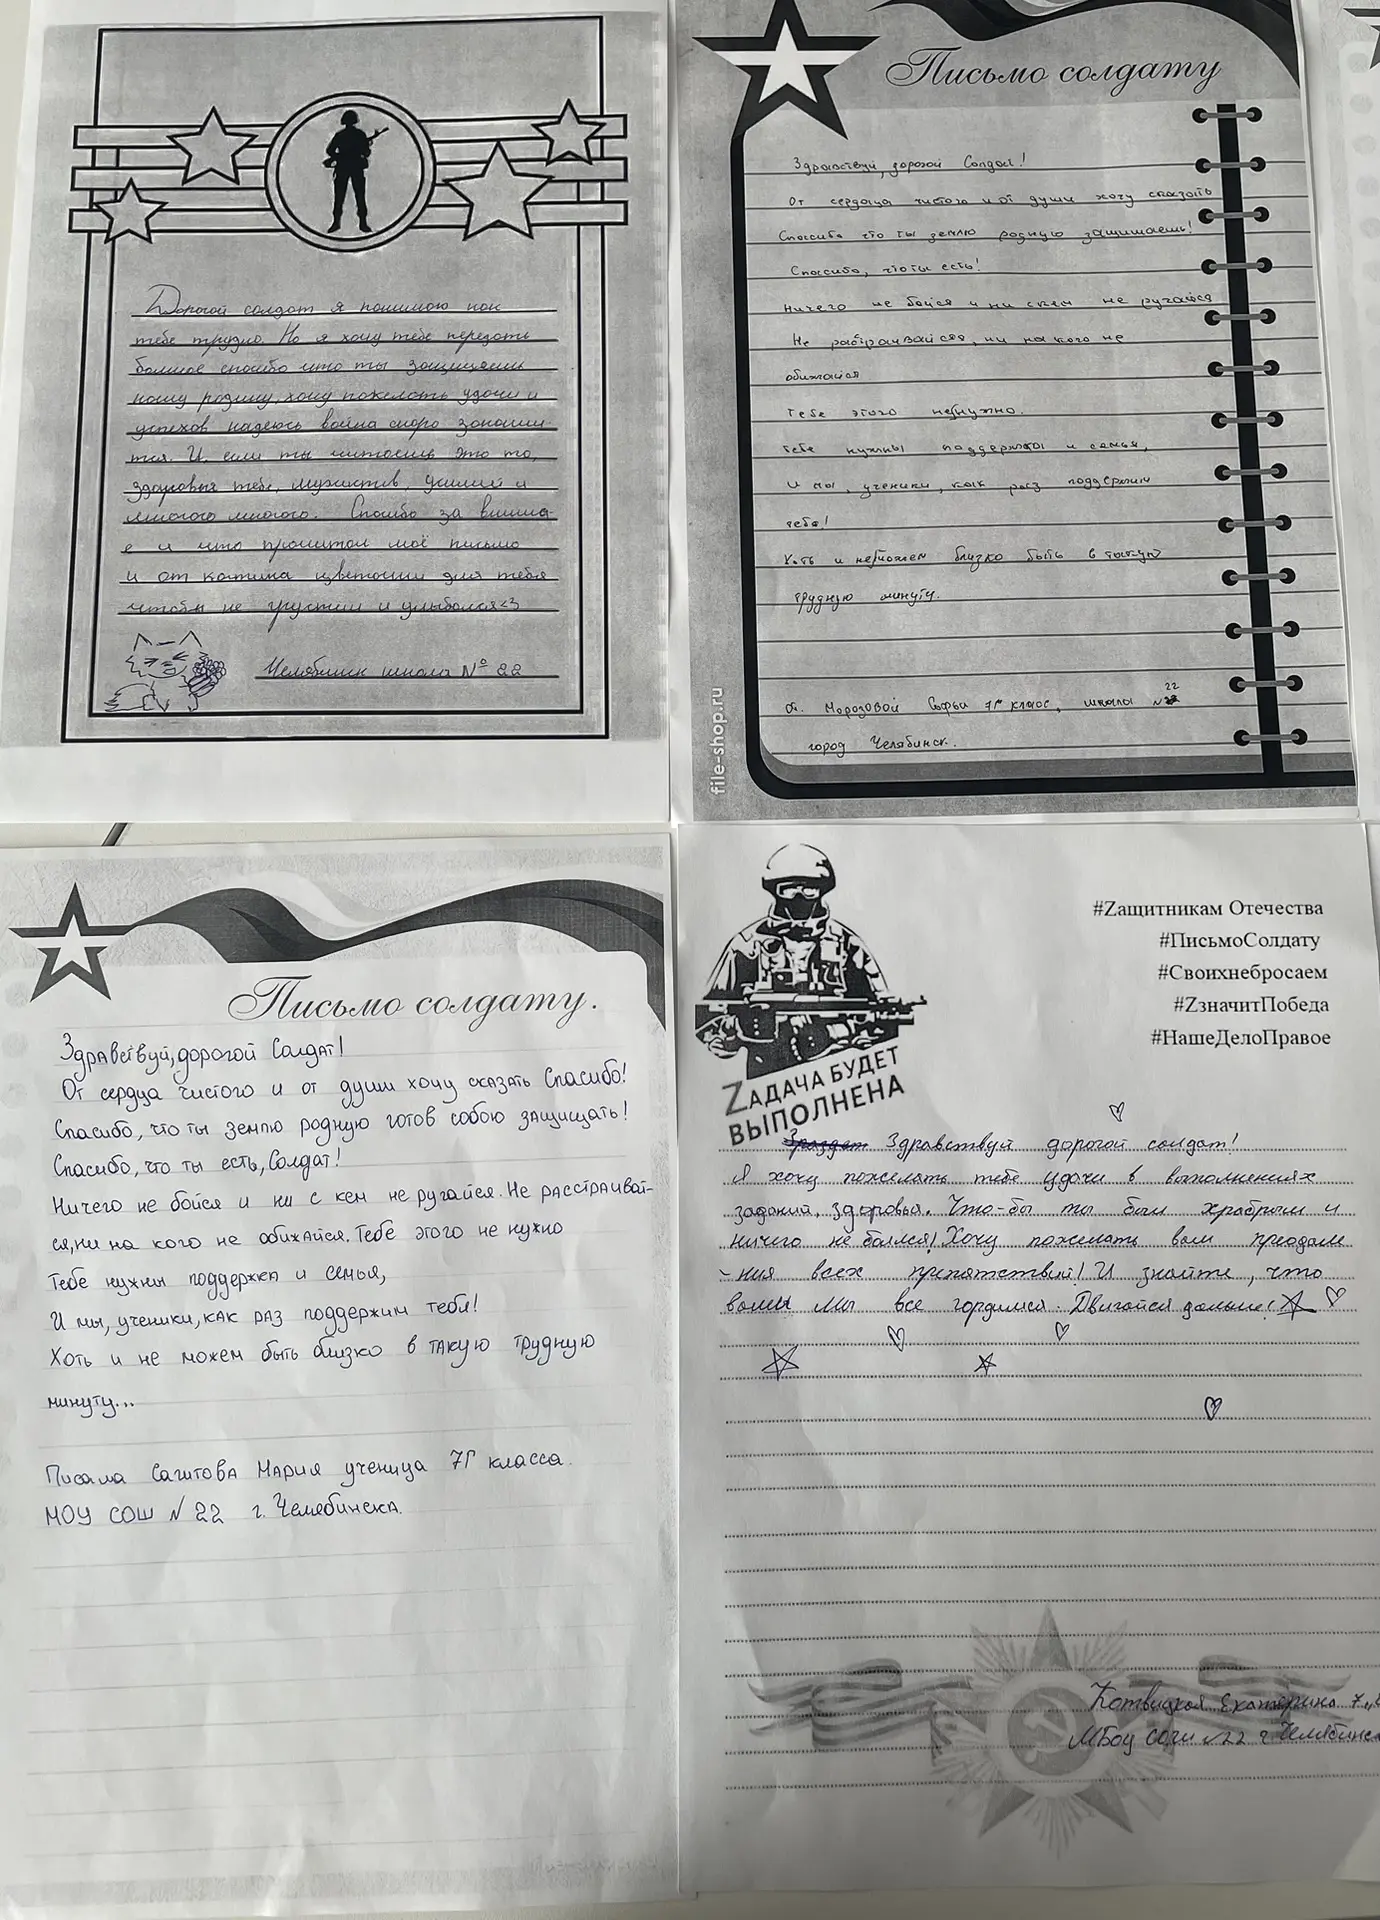 Дорогой солдат я понимою как
тебе трудно. Но я хочу тебе передать
большое спасибо что ты защищаешь
нашу родину, хочу пожелать удачи и
успехов надеюсь война скоро закончи-
тся. И если ты читаешь это то,
здоровья тебе, мужиства, усилий и
многого многого. Спасибо за внима-
е и что прочитал моё письмо
и от котика цветочки для тебя
чтобы не грустил и улыбался<3
Челябинск школа № 22
Письмо солдату
Здравствуй, дорогой Солдат!
От сердца чистого и от души хочу сказать
Спасибо что ты землю родную защищаешь!
Спасибо, что ты есть!
Ничего не бойся и ни с кем не ругайся
Не растраивайся, ни на кого не
обижайся
Тебе этого ненужно.
Тебе нужны поддержка и семья,
И мы, ученики, как раз поддержим
тебя!
Хоть и не можем близко быть в такую
трудную минуту.
От. Морозовой Софьи 7Г класс, школы №
22
город Челябинск.
file-shop.ru
Письмо солдату.
Здравствуй, дорогой Солдат!
От сердца чистого и от души хочу сказать Спасибо!
Спасибо, что ты землю родную готов собою защищать!
Спасибо, что ты есть, Солдат!
Ничего не бойся и ни с кем не ругайся. Не расстраивай-
ся, ни на кого не обижайся. Тебе этого не нужно
Тебе нужны поддержка и семья,
И мы, ученики, как раз поддержим тебя!
Хоть и не можем быть близко в такую трудную
минуту...
Писала Сагитова Мария ученица 7Г класса.
МОУ СОШ № 22 г. Челябинска.
#Zащитникам Отечества
#ПисьмоСолдату
#Своихнебросаем
#ZзначитПобеда
#НашеДелоПравое
ZАДАЧА БУДЕТ
ВЫПОЛНЕНА
Здравствуй дорогой солдат!
Я хочу пожелать тебе удачи в выполнениях
заданий, здоровья. Что-бы ты был храбрым и
ничего не боялся! Хочу пожелать вам преодале
-ния всех препятствий! И знайте, что
вами мы все гордимся. Двигайся дальше!
Котвицкая Екатерина 7 „
МБоу СОШ №22 г Челябинск